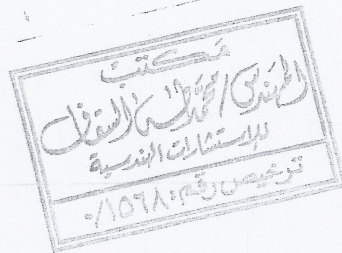 مكتب
المهندس / محمد السقاف
للاستشارات الهندسية
ترخيص رقم: ١٥٦٨/٠